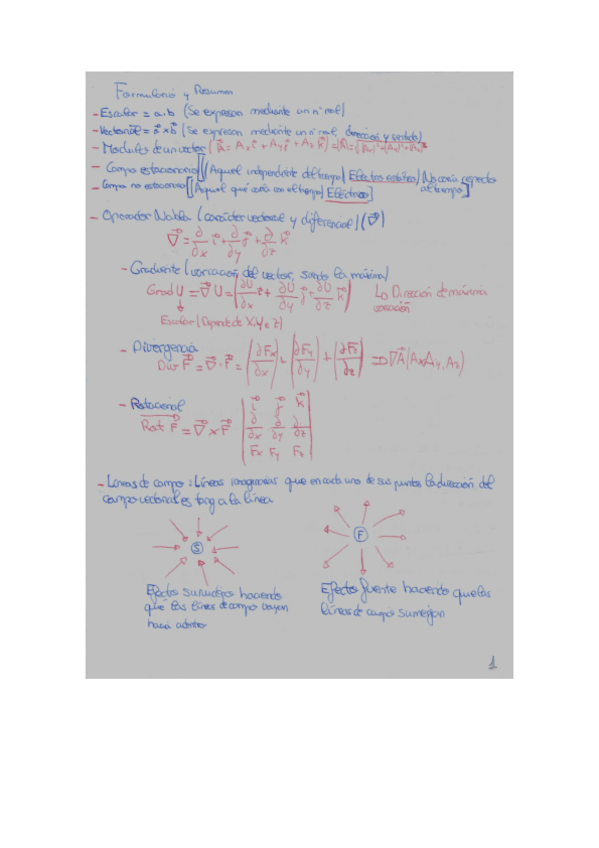 Formulario y Resumen
- Escalar = a·b (Se expresan mediante un nº real)
- Vectorial = a⃗ x b⃗ (Se expresan mediante un nº real, dirección y sentido)
- Modulos de un vector (A⃗ = Ax i⃗ + Ay j⃗ + Az k⃗) = |A⃗| = √(Ax)²+(Ay)²+(Az)²
- Campo estacionario [(Aquel independiente del tiempo) Electros estático / No varía respecto al tiempo]
- Campo no estacionario [(Aquel que varia con el tiempo) Eléctrico]
- Operador Nabla (carácter vectorial y diferencial) (∇⃗)
∇⃗ = ∂/∂x i⃗ + ∂/∂y j⃗ + ∂/∂z k⃗
- Gradiente (variación del vector, siendo la máxima)
Grad U = ∇⃗U = (∂U/∂x i⃗ + ∂U/∂y j⃗ + ∂U/∂z k⃗) ↳ Dirección de máxima variación
↓
Escalar (Depende de X, Y e Z)
- Divergencia
Div F⃗ = ∇⃗ · F⃗ = (∂Fx/∂x) + (∂Fy/∂y) + (∂Fz/∂z) ⇒ ∇A⃗ (Ax, Ay, Az)
- Rotacional
Rot F⃗ = ∇⃗ x F⃗ | i⃗ j⃗ k⃗
∂/∂x ∂/∂y ∂/∂z
Fx Fy Fz |
- Líneas de campo: Líneas imaginarias que en cada uno de sus puntos la dirección del
campo vectorial es tang a la línea
S
F
Efectos sumideros haciendo
que las líneas de campo vayan
hacia adentro
Efectos fuente haciendo que las
líneas de campo
1